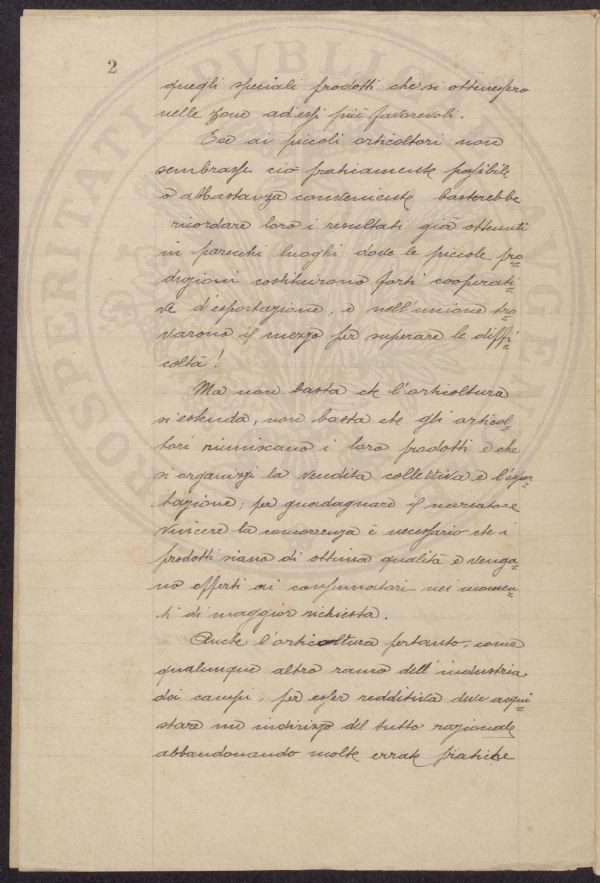 2
quegli speciali prodotti che si ottenessero
nelle zone ad essi più favorevoli.
E se ai piccoli orticoltori non
sembrasse ciò praticamente possibile
o abbastanza conveniente basterebbe
ricordare loro i resultati già ottenuti
in parecchi luoghi dove le piccole pro=
duzioni costituirono forti cooperati=
ve d'esportazione, e nell'unione tro=
varono il mezzo per superare le diffi=
coltà!
Ma non basta che l'orticoltura
si estenda, non basta che gli orticol=
tori riuniscano i loro prodotti e che
si organizzi la vendita collettiva e l'espor=
tazione; per guadagnare il mercato e
vincere la concorrenza è necessario che i
prodotti siano di ottima qualità e venga=
no offerti ai consumatori nei momen=
ti di maggior richiesta.
Anche l'orticoltura pertanto, come
qualunque altro ramo dell'industria
dei campi, per esser redditiva deve acqui=
stare un indirizzo del tutto razionale
abbandonando molte errate pratiche
PROSPERITATI PVBLICAE AVGEN